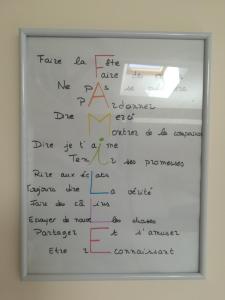 Faire la Fête
Faire des
Ne pAs se
pArdonner
Dire Merci
Montrer de la compassion
Dire je t'aime
Tenir ses promesses
Rire aux éclats
Toujours dire La vérité
Faire des câlins
Essayer de nouvelles choses
Partager Et s'amuser
Etre reconnaissant